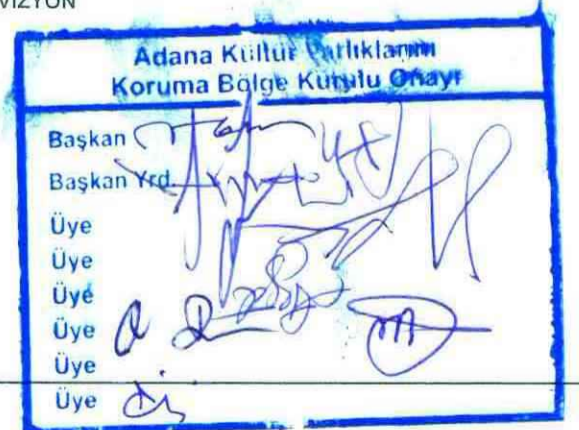 VİZYON
Adana Kültür Varlıklarını
Koruma Bölge Kurulu Onayı
Başkan
Başkan Yrd.
Üye
Üye
Üye
Üye
Üye
Üye